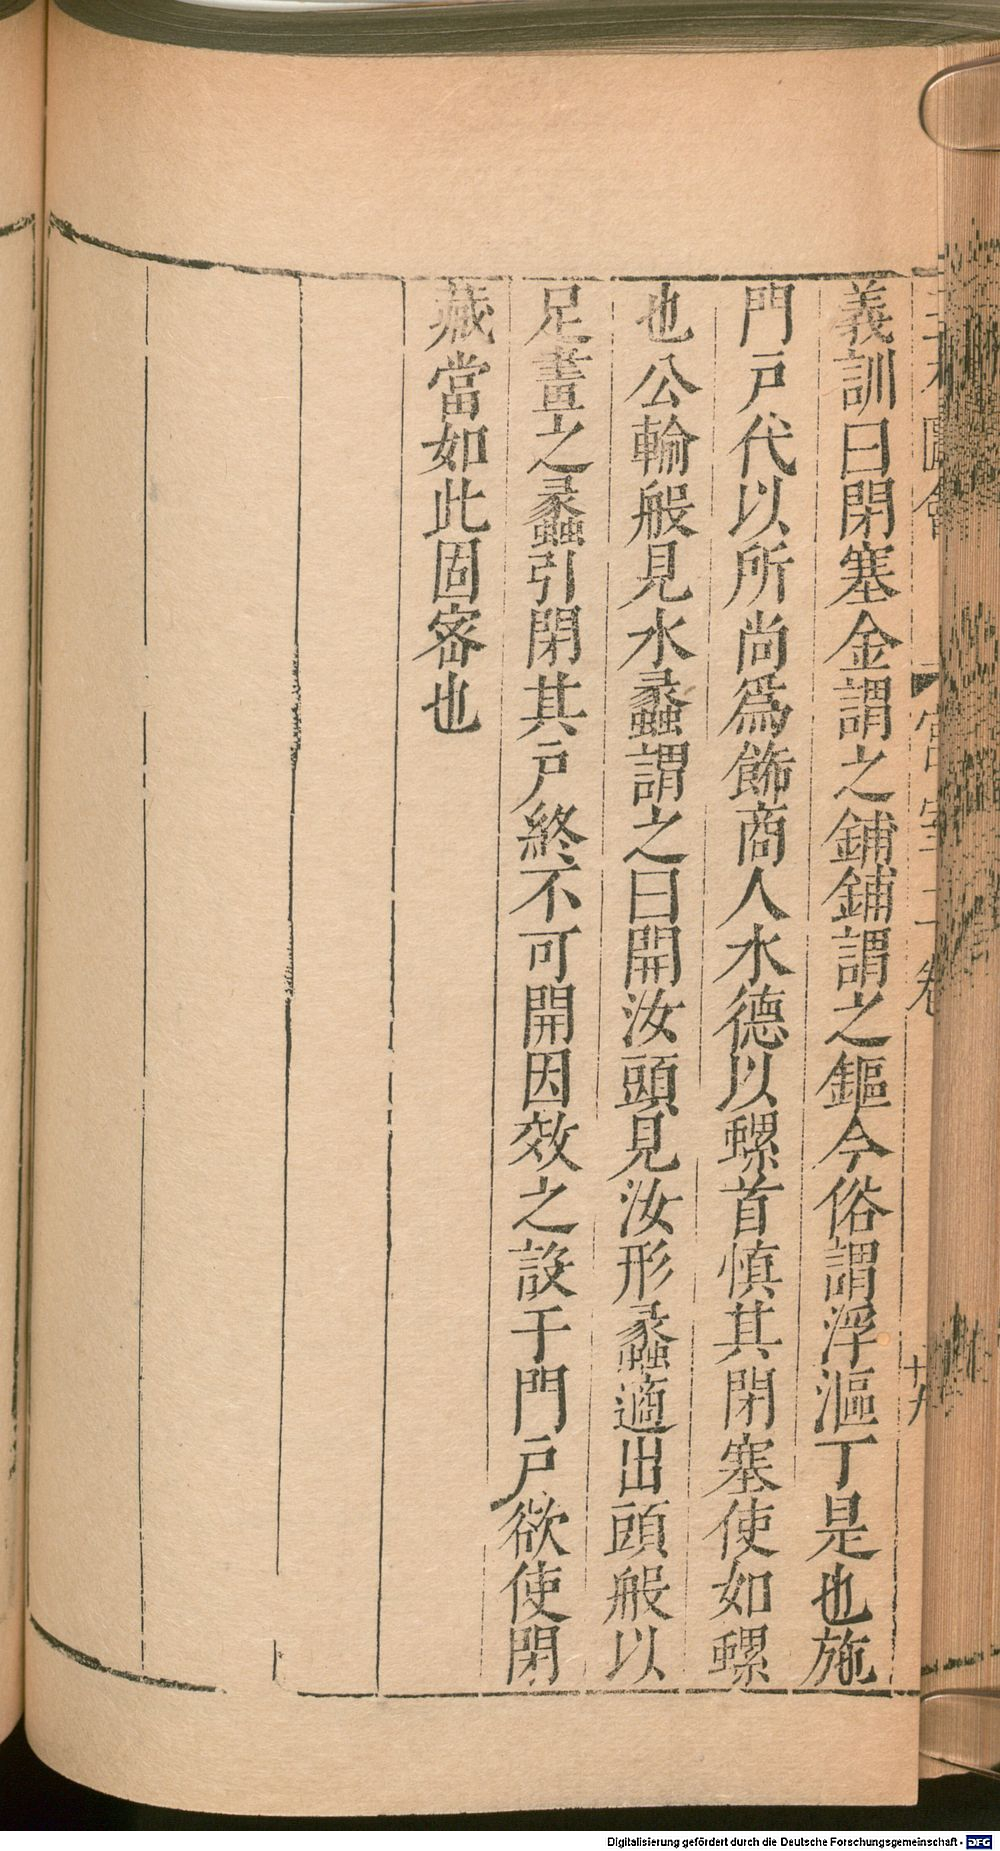 義訓曰閉塞金謂之鋪鋪謂之鏂今俗謂浮漚丁是也施
門戸代以所尚爲飾商人水德以螺首慎其閉塞使如螺
也公輸般見水蠡謂之曰開汝頭見汝形蠡適出頭般以
足畫之蠡引閉其戸終不可開因效之設于門戸欲使閉
藏當如此固密也
宮室
卷
十八
Digitalisierung gefördert durch die Deutsche Forschungsgemeinschaft - DFG